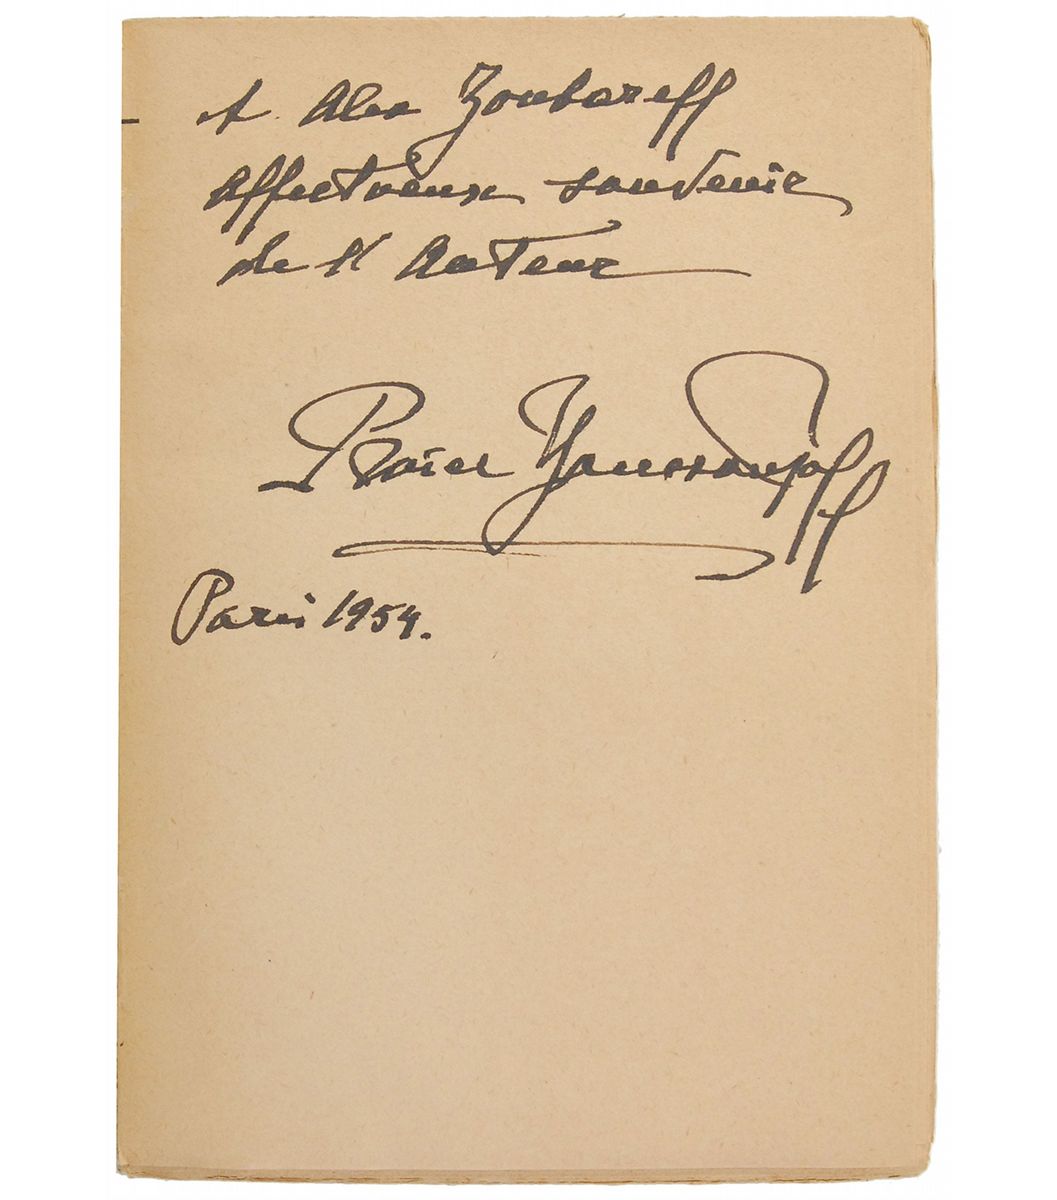 A Alex Zoubareff
affectueux souvenir
de l'Auteur
Prince Youssoupoff
Paris 1954.